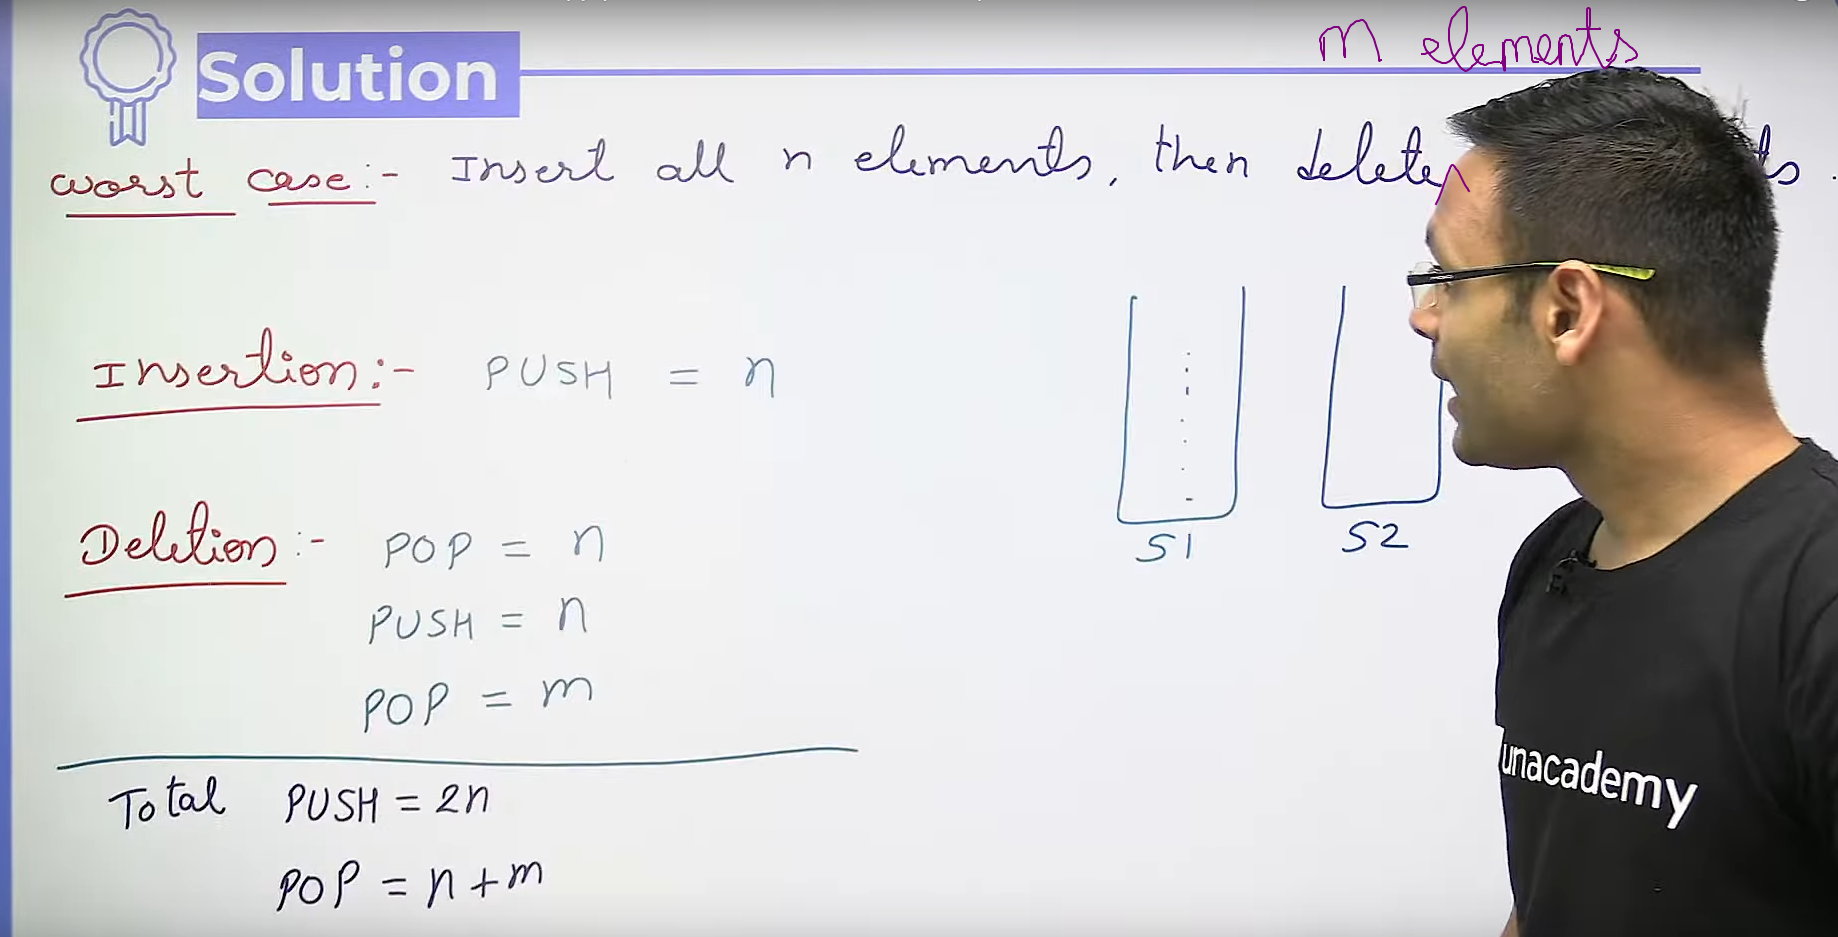 m elements
Solution
worst case:- Insert all n elements, then delete
Insertion:- PUSH = n
Deletion:- POP = n
PUSH = n
POP = m
Total PUSH = 2n
POP = n+m
S1 S2
unacademy